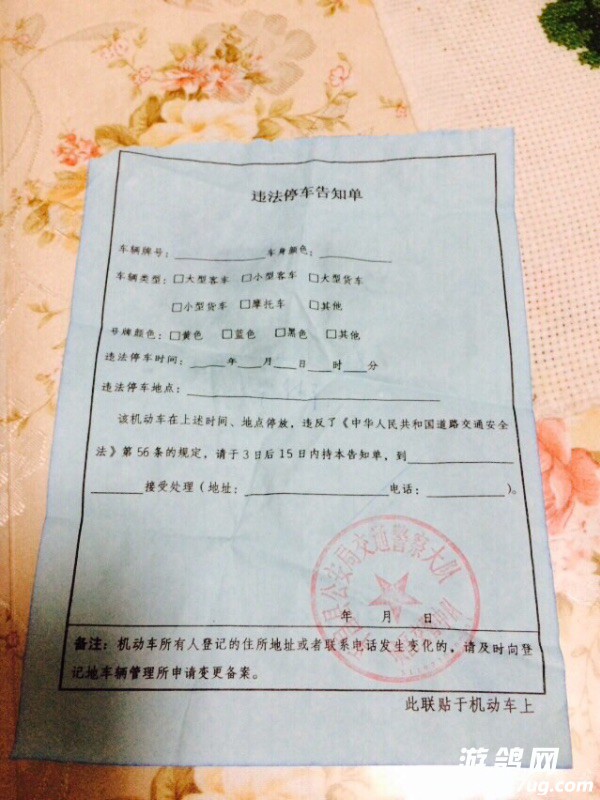 违法停车告知单
车辆牌号：__________车身颜色：________
车辆类型：□大型客车 □小型客车 □大型货车
□小型货车 □摩托车 □其他
号牌颜色：□黄色 □蓝色 □黑色 □其他
违法停车时间：____年____月____日____时____分
违法停车地点：____________________
该机动车在上述时间、地点停放，违反了《中华人民共和国道路交通安全
法》第56条的规定，请于3日后15日内持本告知单，到__________
______接受处理（地址：______________电话：________）。
县公安局交通警察大队
年 月 日
备注：机动车所有人登记的住所地址或者联系电话发生变化的，请及时向登
记地车辆管理所申请变更备案。
此联贴于机动车上
游鸽网